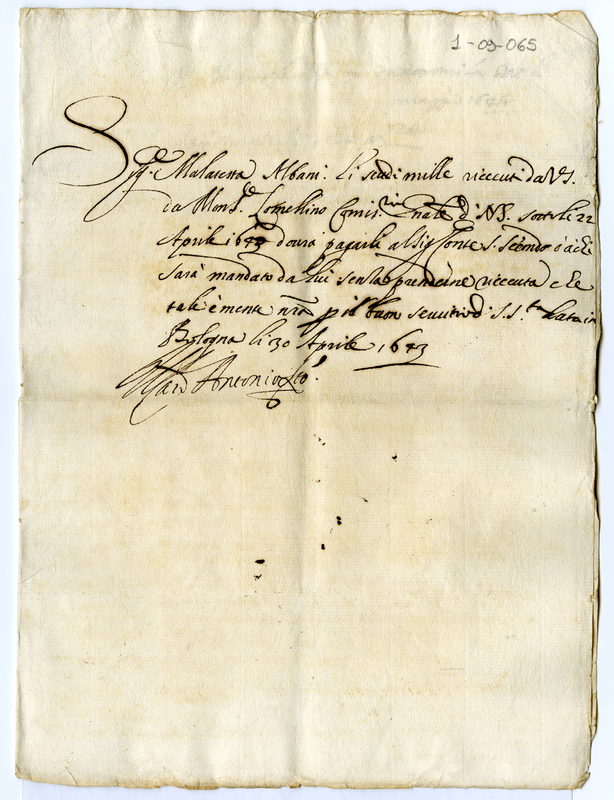 1-09-065
Sig.r Malatesta Albani. Li scudi mille riceuti da VS.
da Mons.r Lomellino Comis.rio Gnale di NS. sotto li 22
Aprile 1643 dourà pagarli al Sig.r Conte S. Secondo ò à chi
sarà mandato da lui senza prenderne riceuta che
tale è mente nr̃a p il buon seruitio di S. S.tà Data in
Bologna li 30 Aprile 1643
Card Antonio